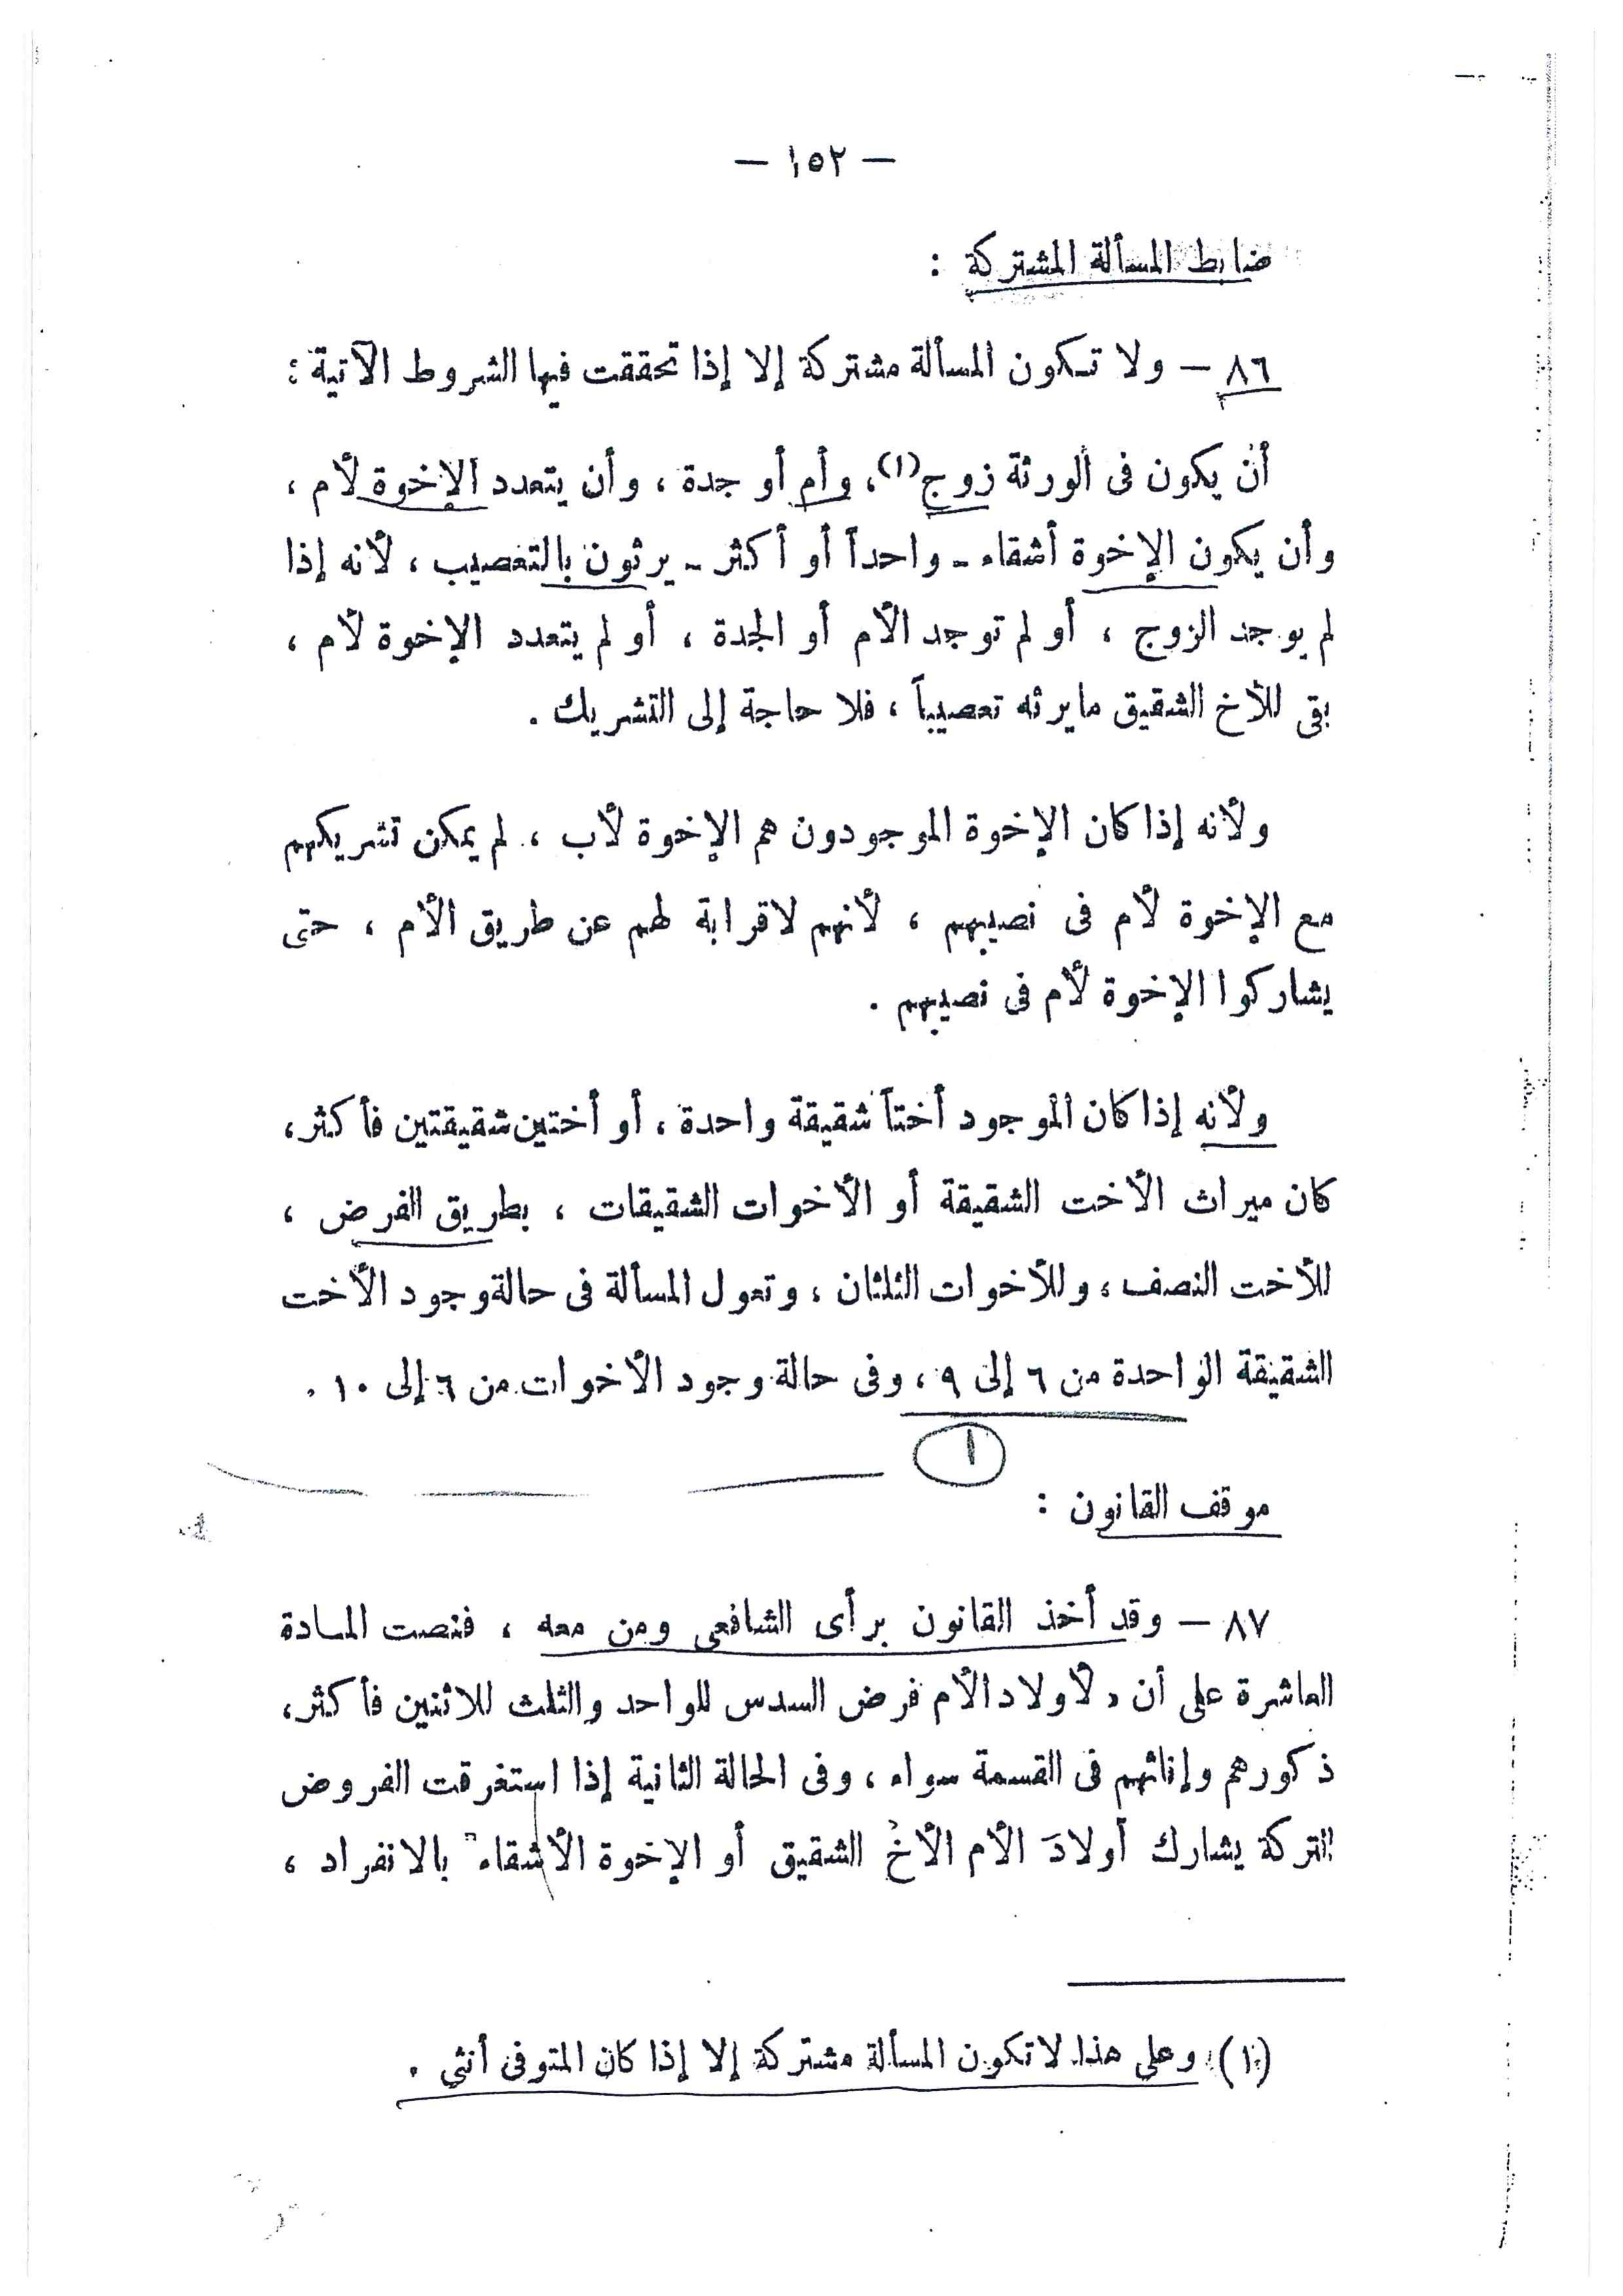 — ١٥٢ —
ضابط المسألة المشتركة :
٨٦ — ولا تكون المسألة مشتركة إلا إذا تحققت فيها الشروط الآتية :
أن يكون فى الورثة زوج (١)، وأم أو جدة ، وأن يتعدد الإخوة لأم ،
وأن يكون الإخوة أشقاء - واحداً أو أكثر - يرثون بالتعصيب ، لأنه إذا
لم يوجد الزوج ، أو لم توجد الأم أو الجدة ، أو لم يتعدد الإخوة لأم ،
بقى للأخ الشقيق ما يرثه تعصيباً ، فلا حاجة إلى التشريك .
ولأنه إذا كان الإخوة الموجودون هم الإخوة لأب ، لم يمكن تشريكهم
مع الإخوة لأم فى نصيبهم ، لأنهم لا قرابة لهم عن طريق الأم ، حتى
يشاركوا الإخوة لأم فى نصيبهم .
ولأنه إذا كان الموجود أختاً شقيقة واحدة ، أو أختين شقيقتين فأكثر ،
كان ميراث الأخت الشقيقة أو الأخوات الشقيقات ، بطريق الفرض ،
للأخت النصف ، وللأخوات الثلثان ، وتعول المسألة فى حالة وجود الأخت
الشقيقة الواحدة من ٦ إلى ٩ ، وفى حالة وجود الأخوات من ٦ إلى ١٠ .
١
موقف القانون :
٨٧ — وقد أخذ القانون برأى الشافعى ومن معه ، فنصت المادة
العاشرة على أن « لأولاد الأم فرض السدس للواحد والثلث للاثنين فأكثر ،
ذكورهم وإناثهم فى القسمة سواء ، وفى الحالة الثانية إذا استغرقت الفروض
التركة يشارك أولادَ الأم الأخُ الشقيق أو الإخوة الأشقاء بالانفراد ،
(١) وعلى هذا لا تكون المسألة مشتركة إلا إذا كان المتوفى أنثى .